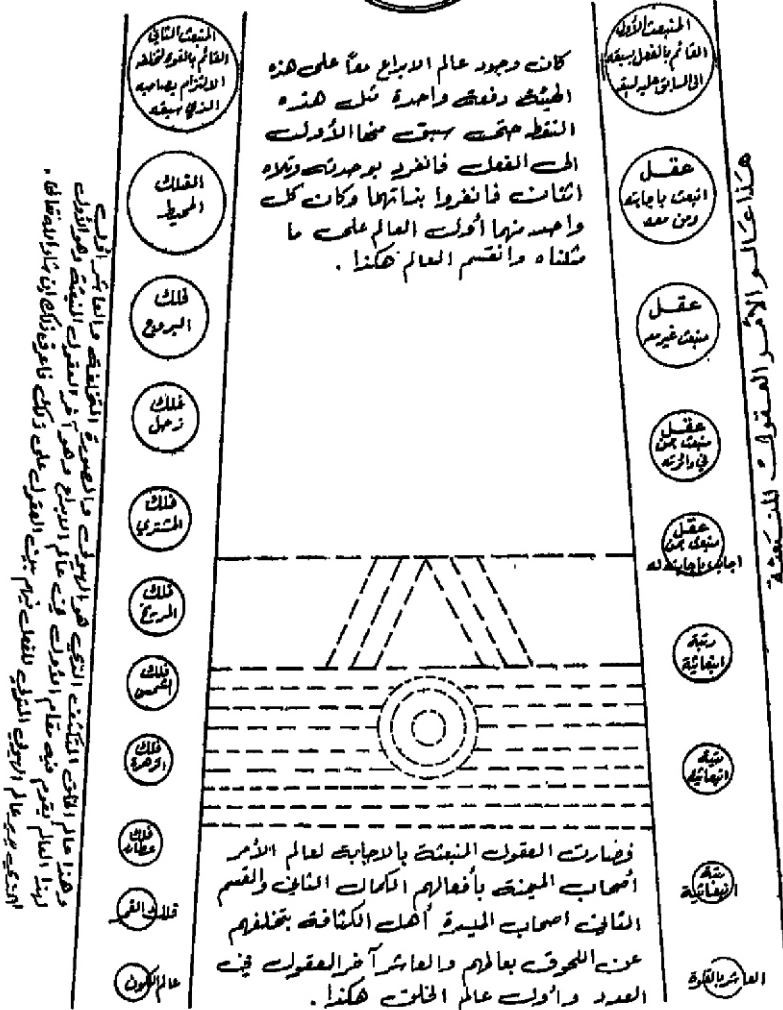 المنبعث الأول
القائم بالفعل بسبقه
الى السابق عليه لسبقه
عقل
انبعث باجابته
ومن معه
عقل
منبعث غير معه
عقل
منبعث من
في دائرته
عقل
منبعث من
اجابه باجابته له
رتبة
انبعاثية
رتبة
انبعاثية
رتبة
انبعاثية
العاشر بالقوة
هذا عالم الأمر العقول المنبعثة
كان وجود عالم الابداع معاً على هذه
الهيئة دفعة واحدة مثل هذه
النقط حتى سبق منها الأول
الى الفعل فانفرد بوحدته وتلاه
اثنان فانفردوا بذاتهما وكان كل
واحد منهما أول العالم على ما
مثلناه وانقسم العالم هكذا .
فصارت العقول المنبعثة بالاجابة لعالم الأمر
أصحاب الميمنة بأفعالهم الكمال الثاني والقسم
الثاني اصحاب الميسرة أهل الكثافة بتخلفهم
عن اللحوق بعالمهم والعاشر آخر العقول في
العدد وأول عالم الخلق هكذا .
المنبعث الثاني
القائم بالقوة لتخلفه
الالتزام بصاحبه
الذي سبقه
الفلك
المحيط
فلك
البروج
فلك
زحل
فلك
المشتري
فلك
المريخ
فلك
الشمس
فلك
الزهرة
فلك
عطارد
فلك القمر
عالم الكون
وهذا عالم الخلق المتكثف الذي هو الهيولى والصورة المتخلفة والعاشر أول
لهذا العالم يقوم فيه مقام الأول في عالم الابداع وهو آخر العقول المنبعثة وهو الأول
الذي يدبر عالم الهيولى المتولي للفعل فيهم بيت العقول على ذلك فاعرف ذلك إن شاء الله تعالى .